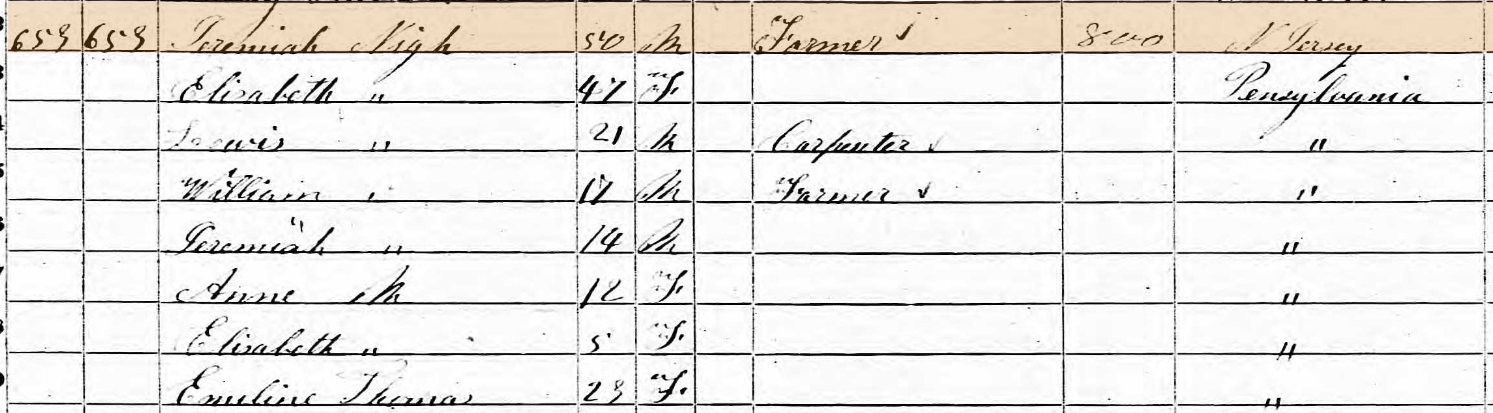 653 653 Jeremiah Nigh 50 M Farmer 800 N Jersey
Elisabeth " 47 F Pensylvania
Lewis " 21 M Carpenter "
William " 17 M Farmer "
Jeremiah " 14 M "
Anne M 12 F "
Elisabeth " 5 F "
Emeline Thomas 23 F "